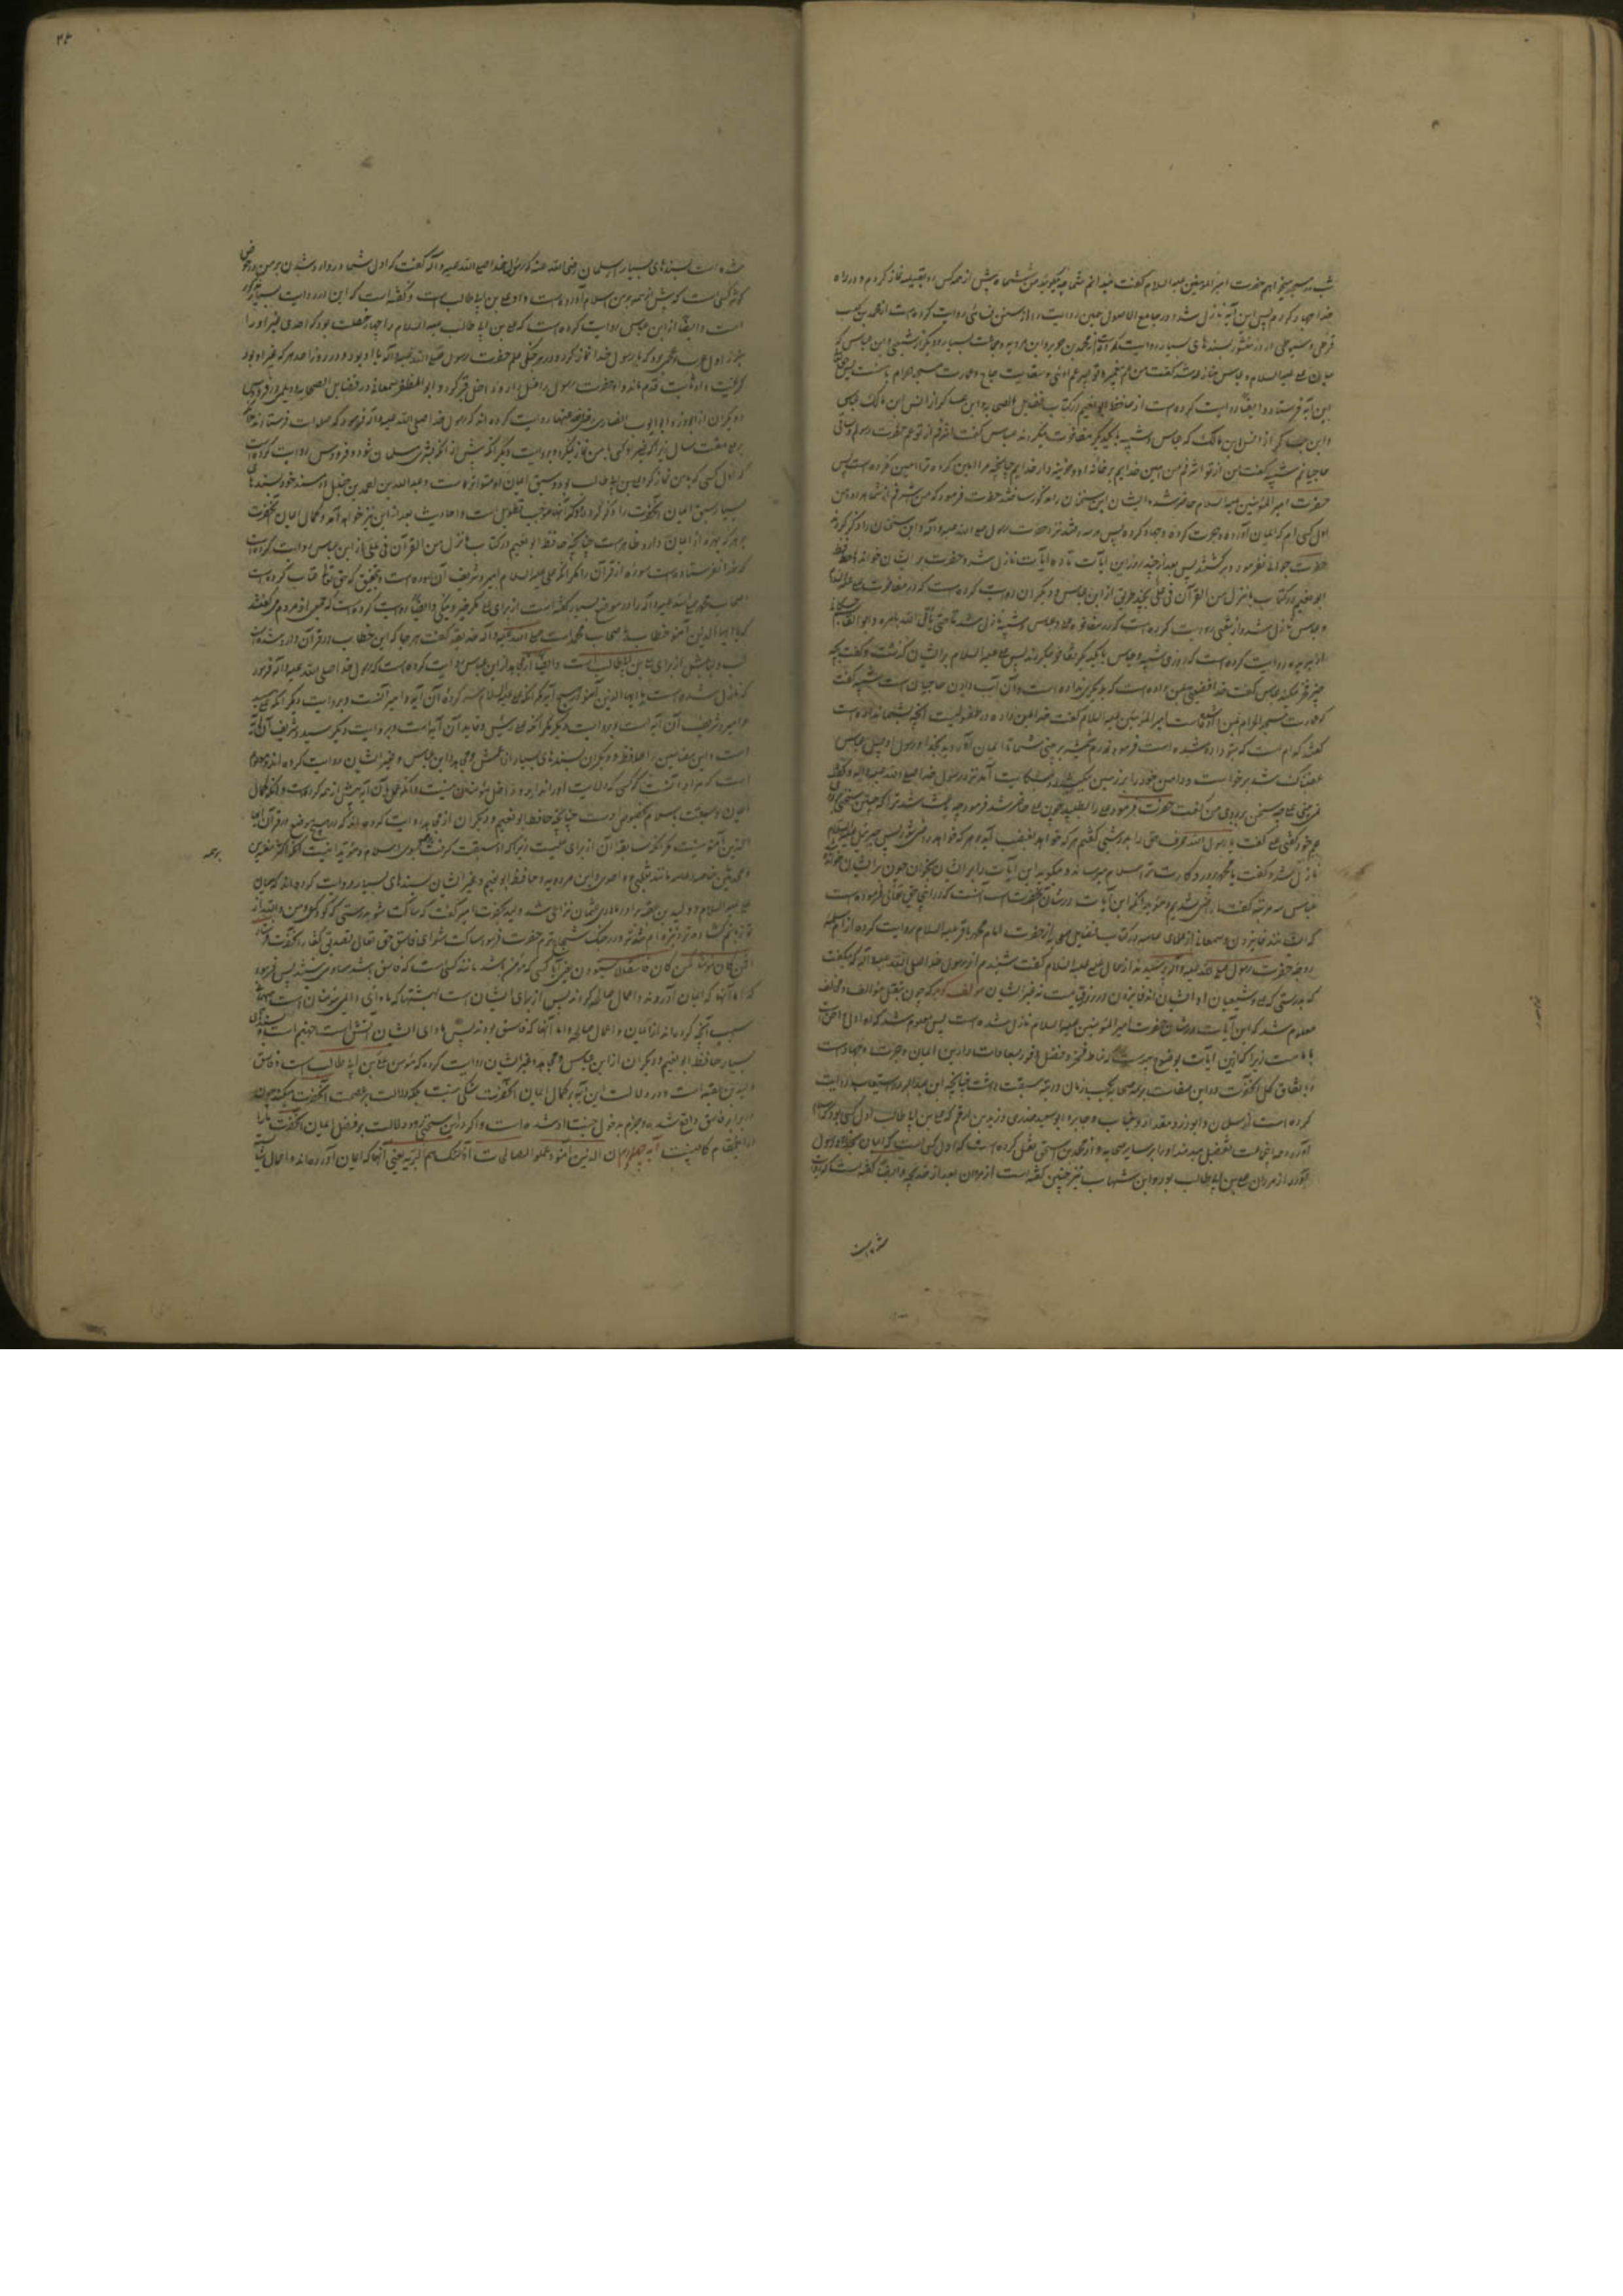 شب در مسجد میخوابم حضرت امیر المؤمنین علیه السلام گفت نمیدانم شما چه میگوئید من ششماه پیش از همه کس رو بقبله نماز کردم و در راه
خدا جهاد کردم پس این آیه نازل شد و در جامع الاصول همین روایت را از سنن نسائی روایت کرده است از محمد بن کعب
قرظی و سیوطی در در منثور بسندهای بسیار روایت کرده
میان علی علیه السلام و عباس
این آیه فرستاد و ایضا روایت کرده است از حافظ ابو نعیم در کتاب فضایل الصحابه و ابن عساکر از انس ابن مالک
که عباس و شیبه با یکدیگر مفاخرت میکردند عباس گفت من اشرفم از تو عم حضرت رسولم و ساقی
حاجیانم شیبه گفت من از تو اشرفم من امین خدایم بر خانه او و خزینه دار خدایم چنانچه مرا امین کرده ترا امین نکرده است پس
حضرت امیر المؤمنین علیه السلام حاضر شد ایشان این سخنان را مذکور ساختند حضرت فرمود که من اشرفم از شما هر دو من
اول کسی ام که ایمان آورده و هجرت کرده و جهاد کرده پس هر سه رفتند نزد حضرت رسول صلی الله علیه و آله و این سخنان را ذکر کردند
حضرت جوابی نفرمود و برگشتند پس بعد از چند روز این آیات تا ده آیات نازل شد و حضرت بر ایشان خواند حافظ
ابو نعیم در کتاب ما نزل من القرآن فی علی بچند طریق از ابن عباس و دیگران روایت کرده است که در مفاخرت علی
و عباس نازل شد و از شعبی روایت کرده است که در مفاخره علی و عباس و شیبه نازل شد تا حتی یأتی الله بامره و ابو القاسم
از بریده روایت کرده است که روزی شیبه و عباس با یکدیگر تفاخر میکردند پس علی علیه السلام بر ایشان گذشت و گفت بچه
چیز فخر میکنید عباس گفت خدا فضیلتی بمن داده است که بدیگری نداده است و آن آب دادن حاجیان است شیبه گفت
که عمارت مسجد الحرام بمن داده است امیر المؤمنین علیه السلام گفت خدا بمن داده در طفولیت آنچه بشما نداده است
گفتند کدام است که بتو داده شده است فرمود زدم شمشیر بر بینی شما تا ایمان آوردید بخدا و رسول او پس عباس
غضبناک شد برخواست و دامن خود را بر زمین میکشید و بشکایت آمد نزد رسول خدا صلی الله علیه و آله و گفت
نمی بینی علی چه سخن بر روی من گفت حضرت فرمود علی را بطلبید چون علی حاضر شد فرمود چه باعث شد ترا که چنین سخنی
عم خود گفتی علی گفت یا رسول الله حرف حق را بدرشتی گفتم هر که خواهد بغضب آید و هر که خواهد راضی شود پس جبرئیل علیه السلام
نازل شد و گفت یا محمد پروردگارت ترا سلام میرساند و میگوید این آیات را بر ایشان بخوان چون بر ایشان خواند
عباس سه مرتبه گفت ما راضی شدیم
که ایشانند فایزون و سمعانی از علمای عامه در کتاب فضایل صحابه از حضرت امام محمد باقر علیه السلام روایت کرده از ام سلمه
زوجه حضرت رسول صلی الله علیه و آله پرسیدند از حال علی علیه السلام گفت شنیدم از رسول خدا صلی الله علیه و آله که میگفت
که بدرستی که علی و شیعیان او ایشانند فایزون در روز قیامت نه غیر ایشان مؤلف گوید که چون بنقل مؤالف و مخالف
معلوم شد که این آیات در شان حضرت امیر المؤمنین علیه السلام نازل شده است پس معلوم شد که او اولی و احق است
بامامت زیرا که ازین آیات بوضوح پیوست که مناط فخر و فضل و فوز بسعادات دارین ایمان و هجرت و جهاد است
و باتفاق کل آنحضرت در این صفات بر همه صحابه بحسب زمان و رتبه سبقت داشت چنانچه ابن عبد البر در استیعاب روایت
کرده است از سلمان و ابوذر و مقداد و خباب و جابر و ابو سعید خدری و زید بن ارقم که علی بن ابی طالب اول کسی بود که اسلام
آورد و این جماعت تفضیل میدهند او را بر سایر صحابه و از محمد بن اسحق نقل کرده است که اول کسی است که ایمان بخدا و رسول
آورد از مردان علی بن ابی طالب بود و ابن شهاب نیز چنین گفته است از مردان بعد از خدیجه و ایضا گفته است که روایت
شده است
شده است بسندهای بسیار از سلمان رضی الله عنه که رسول خدا صلی الله علیه و آله گفت که اول شما در وارد شدن بر من در حوض
کوثر کسی است که پیش از همه بمن اسلام آورده است و او علی بن ابی طالب است و گفته است که این در روایت بسیار
است و ایضا از ابن عباس روایت کرده است که علی بن ابی طالب علیه السلام را چهار خصلت بود که احدی غیر او را
نبود اول عرب و عجمی بود که با رسول خدا نماز کرد و در هر جنگی علم حضرت رسول صلی الله علیه و آله با او بود و در روز احد هر که غیر او بود
گریخت و او ثابت قدم ماند و او حضرت رسول را غسل داد و داخل قبر کرد و ابو المظفر سمعانی در فضایل الصحابه و دیلمی در فردوس
و دیگران از ابوذر و ابو ایوب انصاری رضی الله عنهما روایت کرده اند که رسول خدا صلی الله علیه و آله فرمود که صلوات فرستادند
بر علی هفت سال زیرا که غیر او کسی با من نماز نمیکرد و بروایت دیگر آنکه پیش از آنکه بشری مسلمان شود و فردوس روایت کرده است
که اول کسی که با من نماز کرد علی بن ابی طالب بود و سبق ایمان او متواتر است و عبد الله بن احمد بن حنبل در مسند خود بسندهای
بسیار سبق ایمان آنحضرت را ذکر کرده و ذکر آنها موجب تطویل است و احادیث بعد از این نیز خواهد آمد و کمال ایمان آنحضرت
بر هر که بهره از ایمان دارد ظاهر است چنانچه حافظ ابو نعیم در کتاب ما نزل من القرآن فی علی از ابن عباس روایت کرده است
که خدا نفرستاده است سوره از قرآن را مگر آنکه علی علیه السلام امیر و شریف آن سوره است و بتحقیق که حق تعالی عتاب کرده است
اصحاب محمد صلی الله علیه و آله را در مواضع بسیار و نگفته است از برای علی مگر خیر و نیکی و ایضا روایت کرده است که جمعی از مردم میگفتند
که یا ایها الذین آمنوا خطاب باصحاب محمد است صلی الله علیه و آله حذیفه گفت هر جا که این خطاب در قرآن وارد شده است
لب و لبابش از برای علی بن ابی طالب است و ایضا از مجاهد از ابن عباس روایت کرده است که رسول خدا صلی الله علیه و آله فرمود
که نازل نشده است یا ایها الذین آمنوا در هیچ آیه مگر آنکه علی علیه السلام سر کرده آن آیه و امیر آنست و بروایت دیگر آنکه علی سید
و امیر و شریف آن آیه است و بروایت دیگر مگر آنکه علی رئیس و قاید آن آیه است و بروایت دیگر سید و شریف آن آیه
است و این مضامین را حافظ و دیگران بسندهای بسیار از اعمش و مجاهد و ابن عباس و غیر ایشان روایت کرده اند
ایمان و سبقت باسلام مخصوص اوست چنانچه حافظ ابو نعیم و دیگران از مجاهد روایت کرده اند که در هر موضع در قرآن یا ایها
الذین آمنوا هست مگر آنکه سابقه آن از برای علیست زیرا که او سبقت گرفت بسوی اسلام و مؤید اینست آنکه اکثر مفسرین
و محدثین خاصه و عامه مانند ثعلبی و واحدی و ابن مردویه و حافظ ابو نعیم و غیر ایشان بسندهای بسیار روایت کرده اند که میان
علی علیه السلام و ولید بن عقبه برادر مادری عثمان نزاعی شد ولید بحضرت امیر گفت که ساکت شو بدرستی که تو کودکی و من والله از
تو زبانم گشاده تر و نیزه ام تندتر و در جنگ شجاع ترم حضرت فرمود ساکت شو ای فاسق حق تعالی تصدیق گفتار آنحضرت فرستاد
افمن کان مؤمنا کمن کان فاسقا لا یستوون یعنی آیا کسی که مؤمن باشد مانند کسی است که فاسق باشد مساوی نیستند پس فرمود
که اما آنها که ایمان آوردند و اعمال صالحه کردند پس از برای ایشان است بهشتها که ماوای مؤمنان است
بسبب آنچه کرده اند از ایمان و اعمال صالحه و اما آنها که فاسق بودند پس ماوای ایشان آتش است
بسیار حافظ ابو نعیم و دیگران از ابن عباس و مجاهد و غیر ایشان روایت کرده که مؤمن علی بن ابی طالب است و فاسق
ولید بن عقبه است و در دلالت این آیه بر کمال ایمان آنحضرت شکی نیست بلکه دلالت بر عصمت آنحضرت میکند
برابر فاسق واقع شده و جزم بدخول جنت او شده است و اگر در این سخنی رود دلالت بر فضل ایمان آنحضرت
در این مقام کافیست آیه چهارم ان الذین آمنوا و عملوا الصالحات اولئک هم خیر البریه یعنی آنها که ایمان آورده اند و اعمال